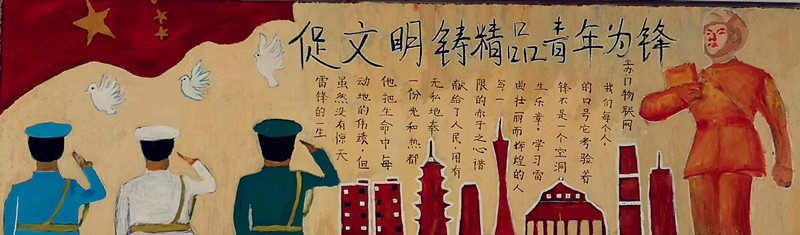 促文明铸精品青年为锋
雷锋的一生
虽然没有惊天
动地的伟绩，但
他把生命中每
一份光和热都
无私地奉
献给了人民，用有
限的赤子之心谱
写一
曲壮丽而辉煌的人
生乐章，学习雷
锋不是一个空洞
的口号它考验着
我们每个人.
物联网